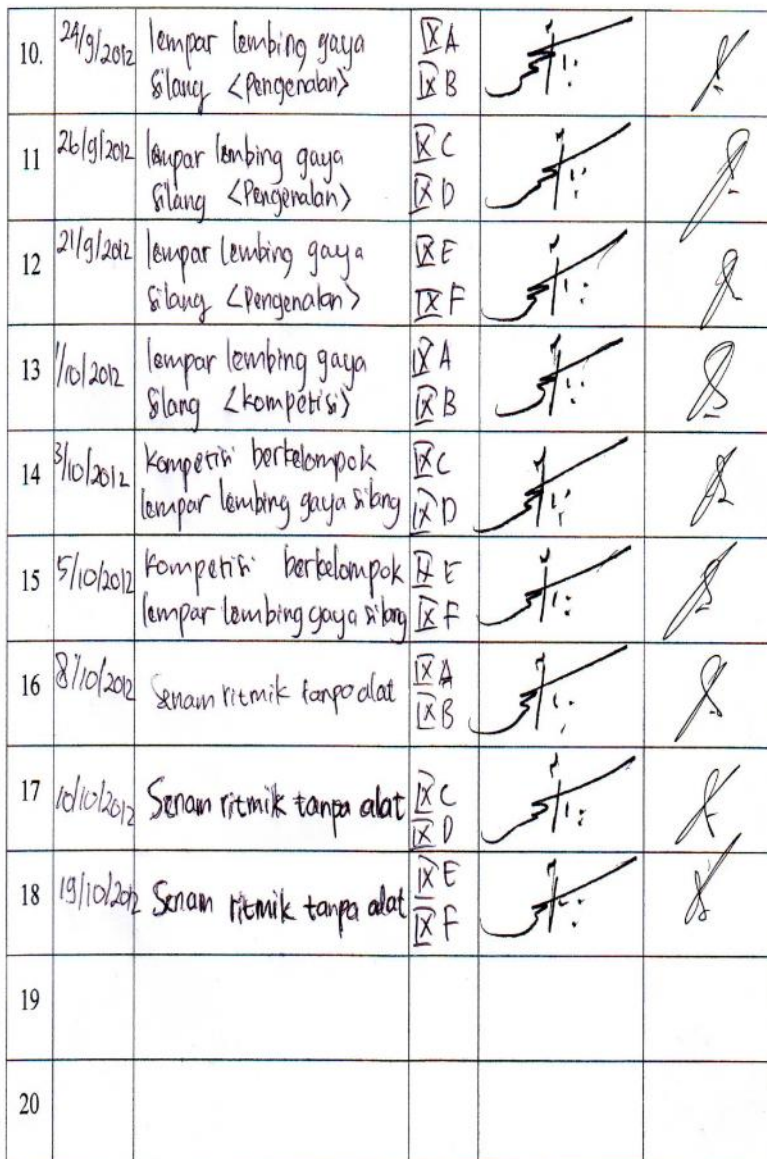 10. 24/9/2012 lempar lembing gaya IX A
silang <Pengenalan> IX B
11 26/9/2012 lempar lembing gaya IX C
silang <Pengenalan> IX D
12 21/9/2012 lempar lembing gaya IX E
silang <Pengenalan> IX F
13 1/10/2012 lempar lembing gaya IX A
silang <kompetisi> IX B
14 3/10/2012 kompetisi berkelompok IX C
lempar lembing gaya silang IX D
15 5/10/2012 kompetisi berkelompok IX E
lempar lembing gaya silang IX F
16 8/10/2012 Senam ritmik tanpa alat IX A
IX B
17 10/10/2012 Senam ritmik tanpa alat IX C
IX D
18 19/10/2012 Senam ritmik tanpa alat IX E
IX F
19
20